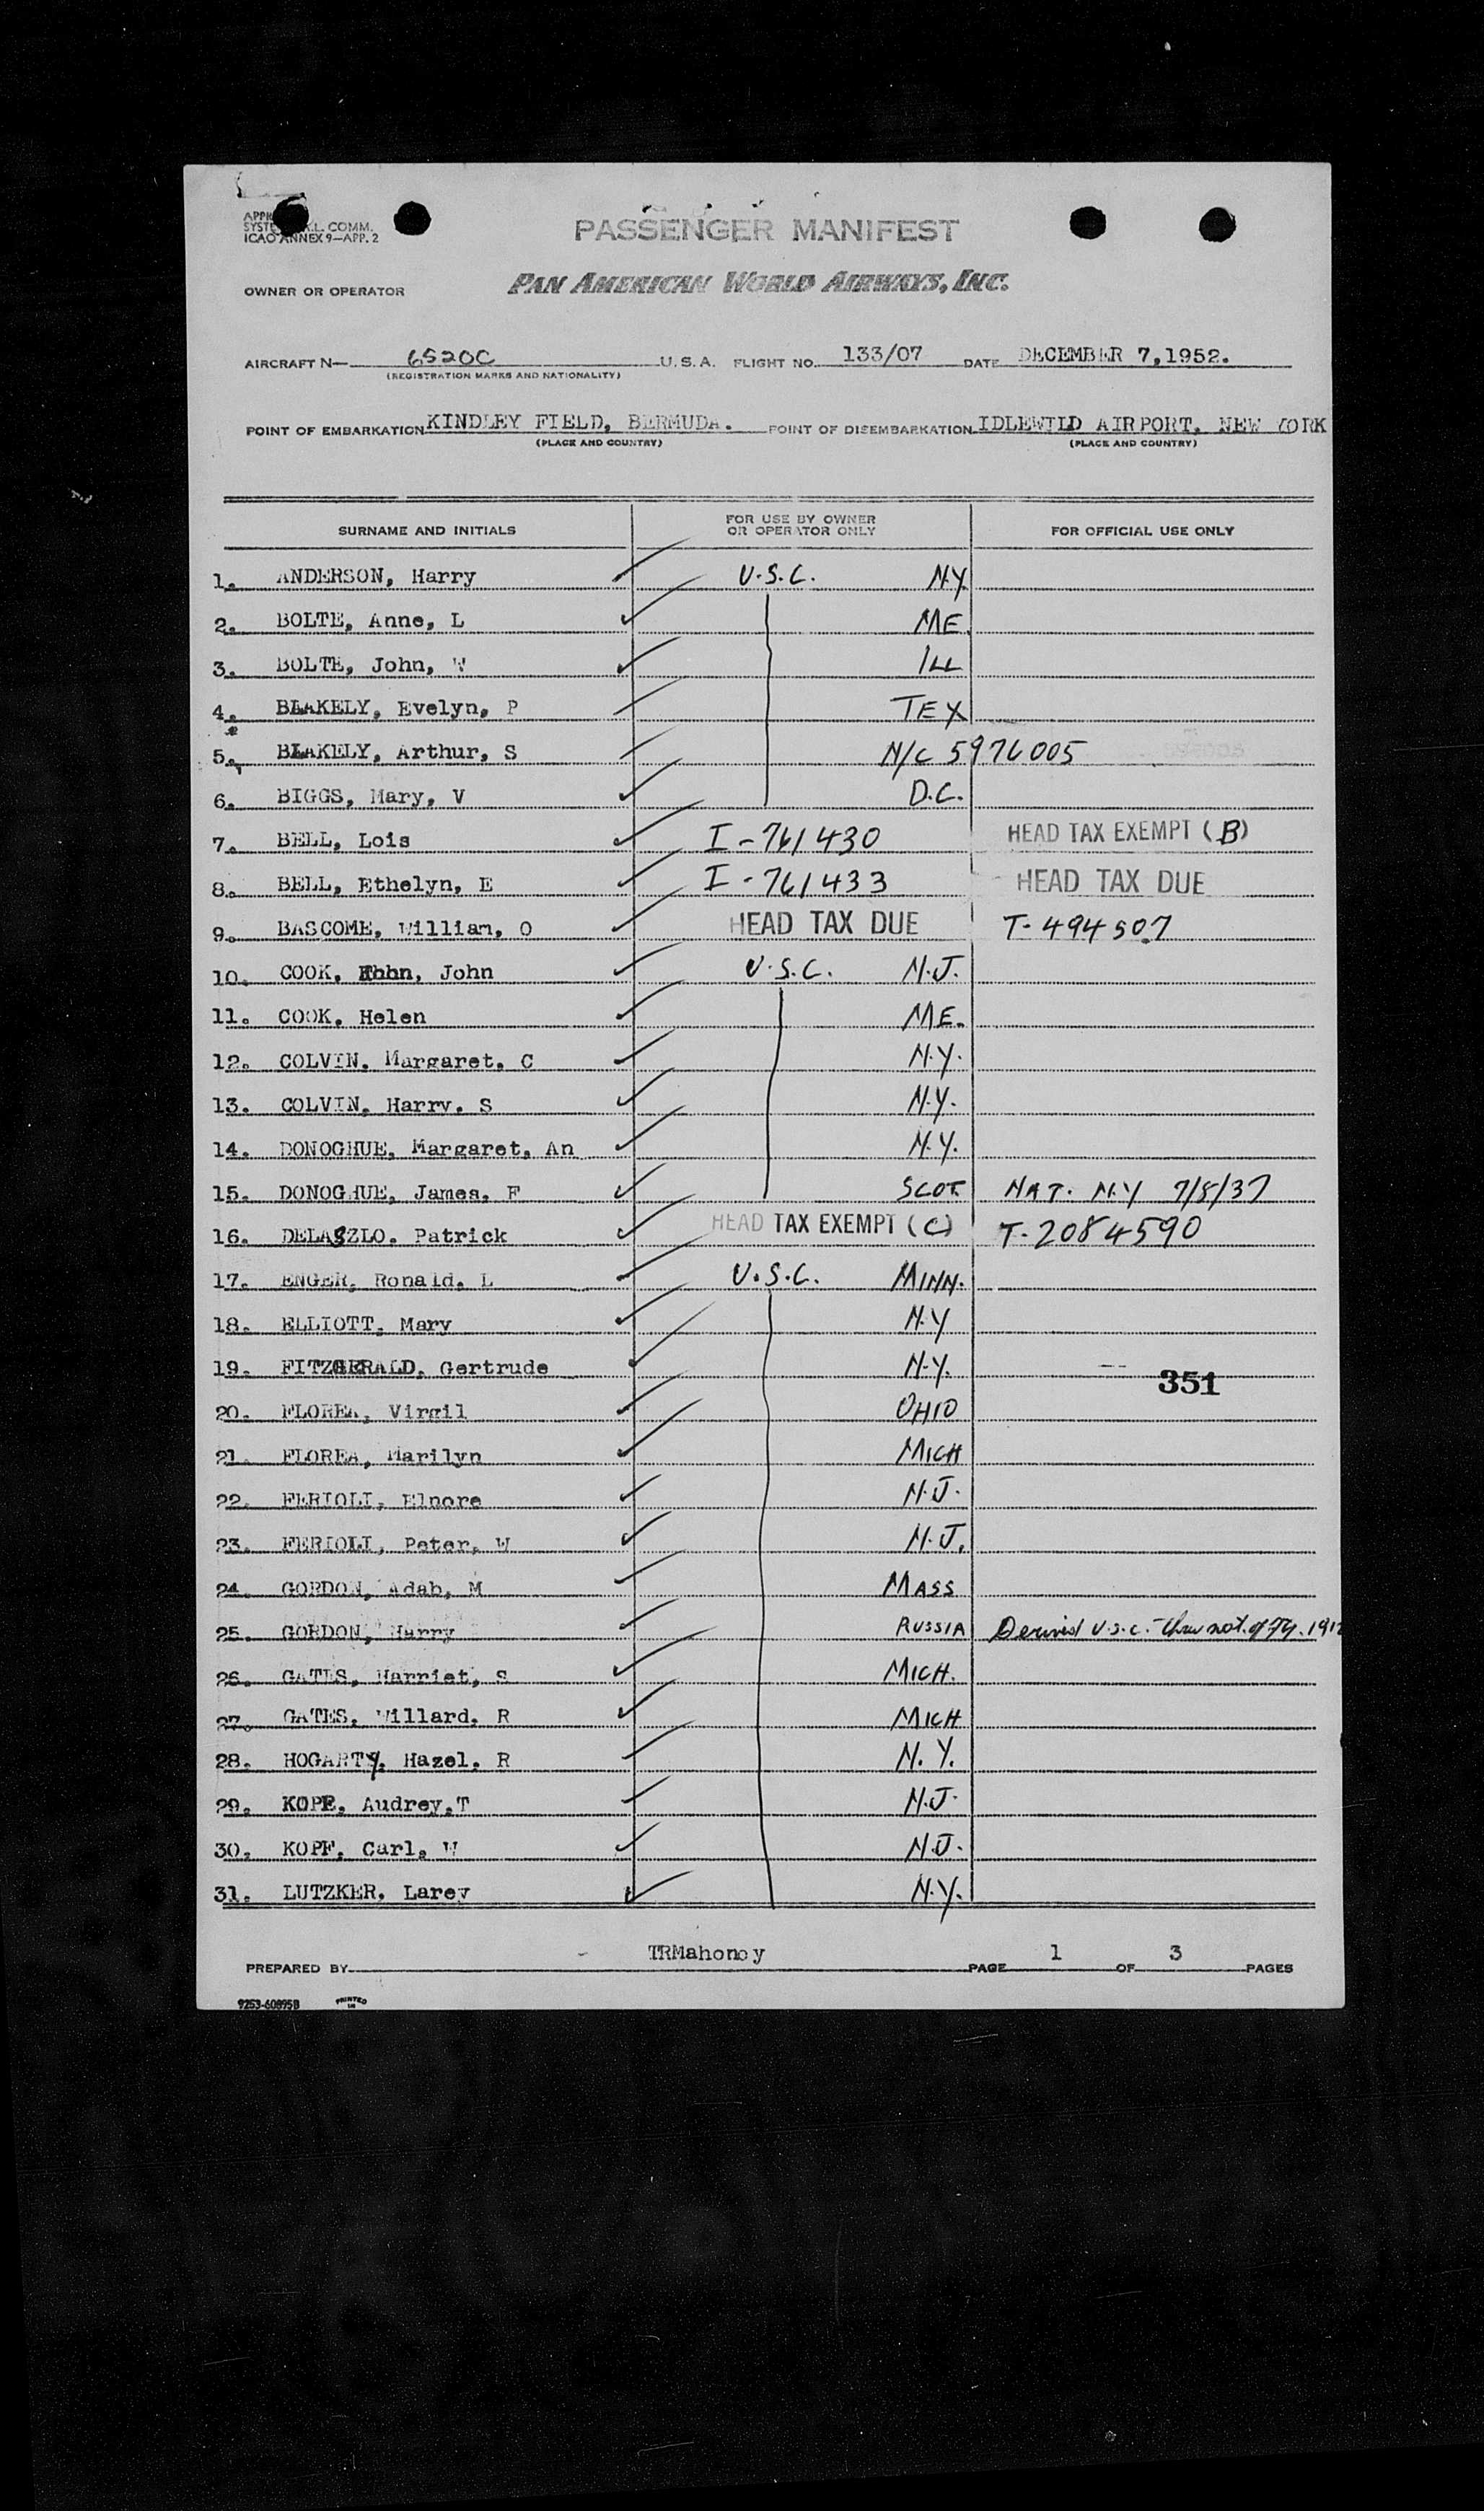 SYSTE A.L. COMM.
ICAO ANNEX 9—APP. 2
PASSENGER MANIFEST
OWNER OR OPERATOR PAN AMERICAN WORLD AIRWAYS, INC.
AIRCRAFT N— 6520C U.S.A. FLIGHT NO. 133/07 DATE DECEMBER 7,1952.
(REGISTRATION MARKS AND NATIONALITY)
POINT OF EMBARKATION KINDLEY FIELD, BERMUDA. POINT OF DISEMBARKATION IDLEWILD AIRPORT, NEW YORK
(PLACE AND COUNTRY) (PLACE AND COUNTRY)
SURNAME AND INITIALS FOR USE BY OWNER OR OPERATOR ONLY FOR OFFICIAL USE ONLY
1. ANDERSON, Harry U.S.C. N.Y.
2. BOLTE, Anne, L ME.
3. BOLTE, John, W ILL
4. BLAKELY, Evelyn, P TEX
5. BLAKELY, Arthur, S N/C 5976005
6. BIGGS, Mary, V D.C.
7. BELL, Lois I-761430 HEAD TAX EXEMPT (B)
8. BELL, Ethelyn, E I-761433 HEAD TAX DUE
9. BASCOME, William, O HEAD TAX DUE T-494507
10. COOK, John U.S.C. N.J.
11. COOK, Helen ME.
12. COLVIN, Margaret, C N.Y.
13. COLVIN, Harry, S N.Y.
14. DONOGHUE, Margaret, An N.Y.
15. DONOGHUE, James, F SCOT. NAT. N.Y 7/8/37
16. DELASZLO. Patrick HEAD TAX EXEMPT (C) T-2084590
17. ENGER, Ronald, L U.S.C. MINN.
18. ELLIOTT, Mary N.Y
19. FITZGERALD, Gertrude N.Y.
351
20. FLOREA, Virgil OHIO
21. FLOREA, Marilyn MICH
22. FERIOLI, Elnore N.J.
23. FERIOLI, Peter, W N.J.
24. GORDON, Adab, M MASS
25. GORDON, Harry RUSSIA Derived U.S.C. thru nat. of 191
26. GATES, Harriet, S MICH.
27. GATES, Willard, R MICH
28. HOGARTY, Hazel, R N.Y.
29. KOPF, Audrey,T N.J.
30. KOPF, Carl, W N.J.
31. LUTZKER, Larey N.Y.
PREPARED BY TRMahoney PAGE 1 OF 3 PAGES
9253-60895B PRINTED IN